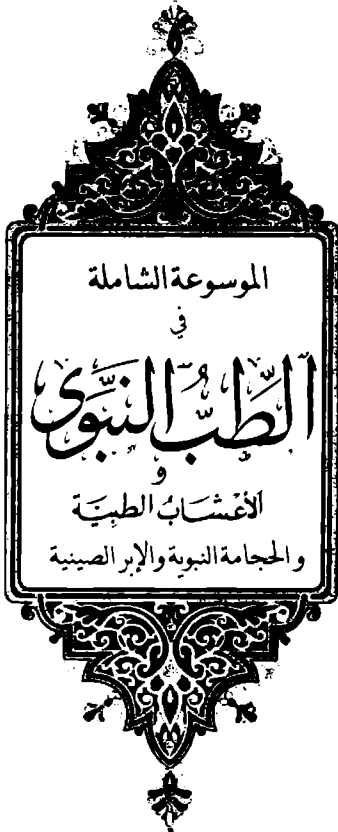 الموسوعة الشاملة
في
الطِّبُّ النَّبَوِي
و
الأعْشَابُ الطبيَّة
والحجامة النبوية والإبر الصينية